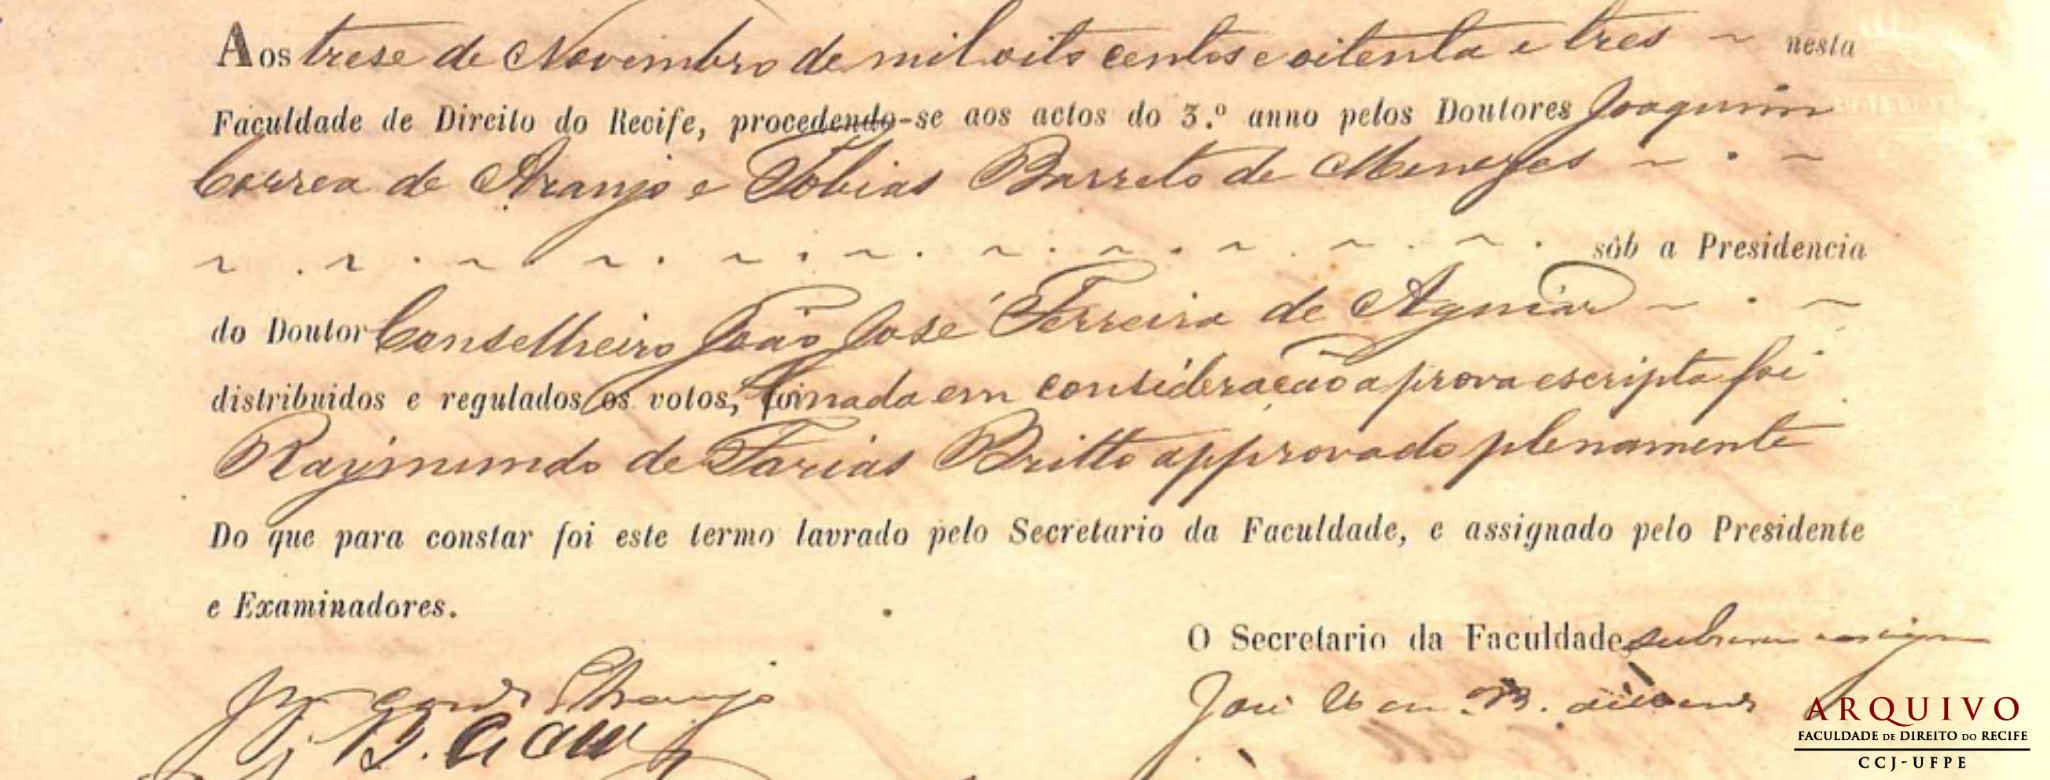 Aos trese de Novembro de mil oito centos e oitenta e tres ~ nesta
Faculdade de Direito do Recife, procedendo-se aos actos do 3.º anno pelos Doutores Joaquim
Correa de Araujo e Tobias Barreto de Menezes ~ . ~
~ . ~ . ~ . ~ . ~ . ~ . ~ . ~ . ~ . ~ . ~ . sôb a Presidencia
do Doutor Conselheiro João José Ferreira de Aguiar ~ . ~
distribuidos e regulados os votos, tomada em consideração a prova escripta foi
Raymundo de Farias Britto approvado plenamente
Do que para constar foi este termo lavrado pelo Secretario da Faculdade, e assignado pelo Presidente
e Examinadores.
O Secretario da Faculdade
José
ARQUIVO
FACULDADE DE DIREITO DO RECIFE
CCJ-UFPE